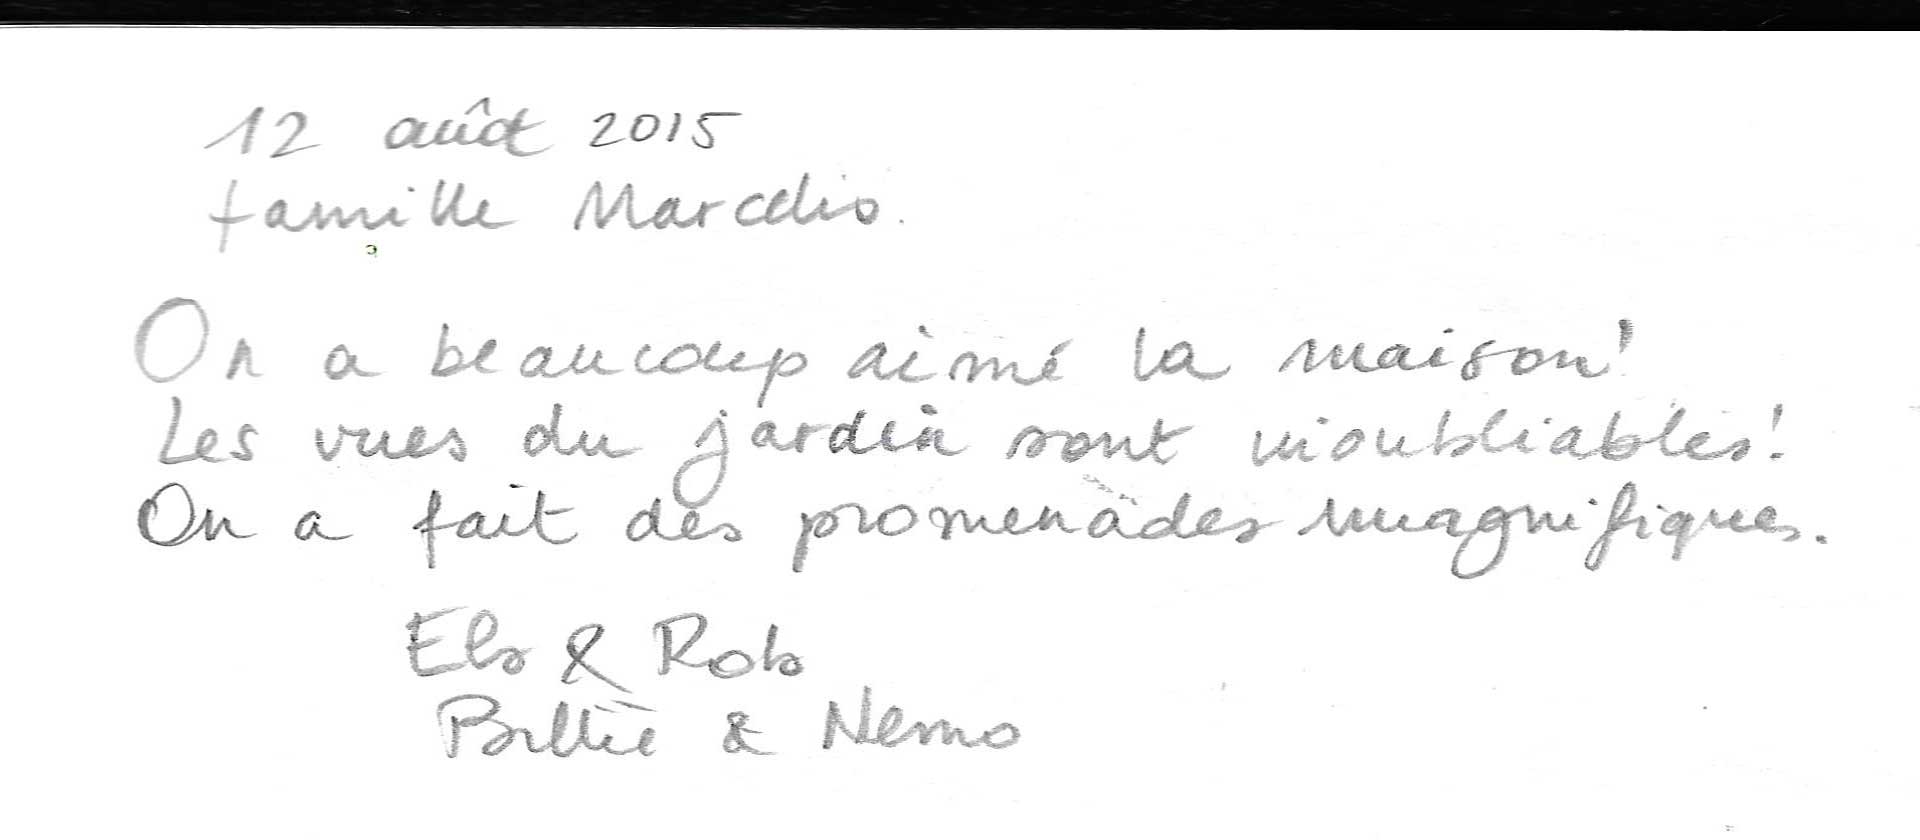 12 août 2015
famille Marcelis.
On a beaucoup aimé la maison!
Les vues du jardin sont inoubliables!
On a fait des promenades magnifiques.
Els & Rob
Billie & Nemo